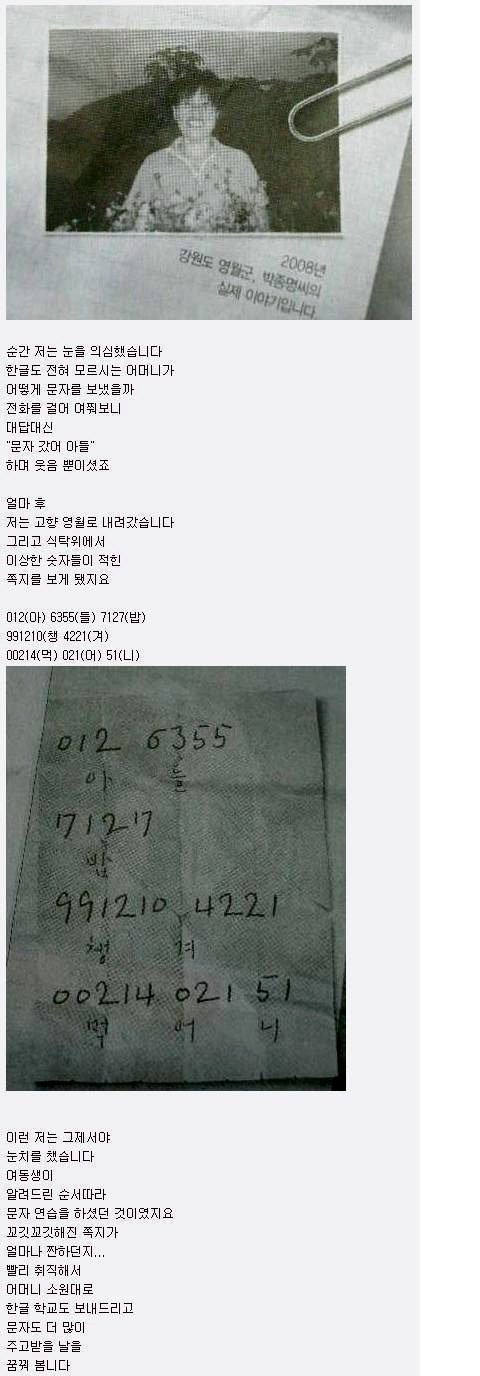 2008년
강원도 영월군, 박종명씨의
실제 이야기입니다.
순간 저는 눈을 의심했습니다
한글도 전혀 모르시는 어머니가
어떻게 문자를 보냈을까
전화를 걸어 여쭤보니
대답대신
"문자 갔어 아들"
하며 웃음 뿐이셨죠
얼마 후
저는 고향 영월로 내려갔습니다
그리고 식탁위에서
이상한 숫자들이 적힌
쪽지를 보게 됐지요
012(아) 6355(들) 7127(밥)
991210(챙 4221(겨)
00214(먹) 021(어) 51(니)
012 6355
아 들
7127
밥
991210 4221
챙 겨
00214 021 51
먹 어 니
이런 저는 그제서야
눈치를 챘습니다
여동생이
알려드린 순서따라
문자 연습을 하셨던 것이였지요
꼬깃꼬깃해진 쪽지가
얼마나 짠하던지...
빨리 취직해서
어머니 소원대로
한글 학교도 보내드리고
문자도 더 많이
주고받을 날을
꿈꿔 봅니다